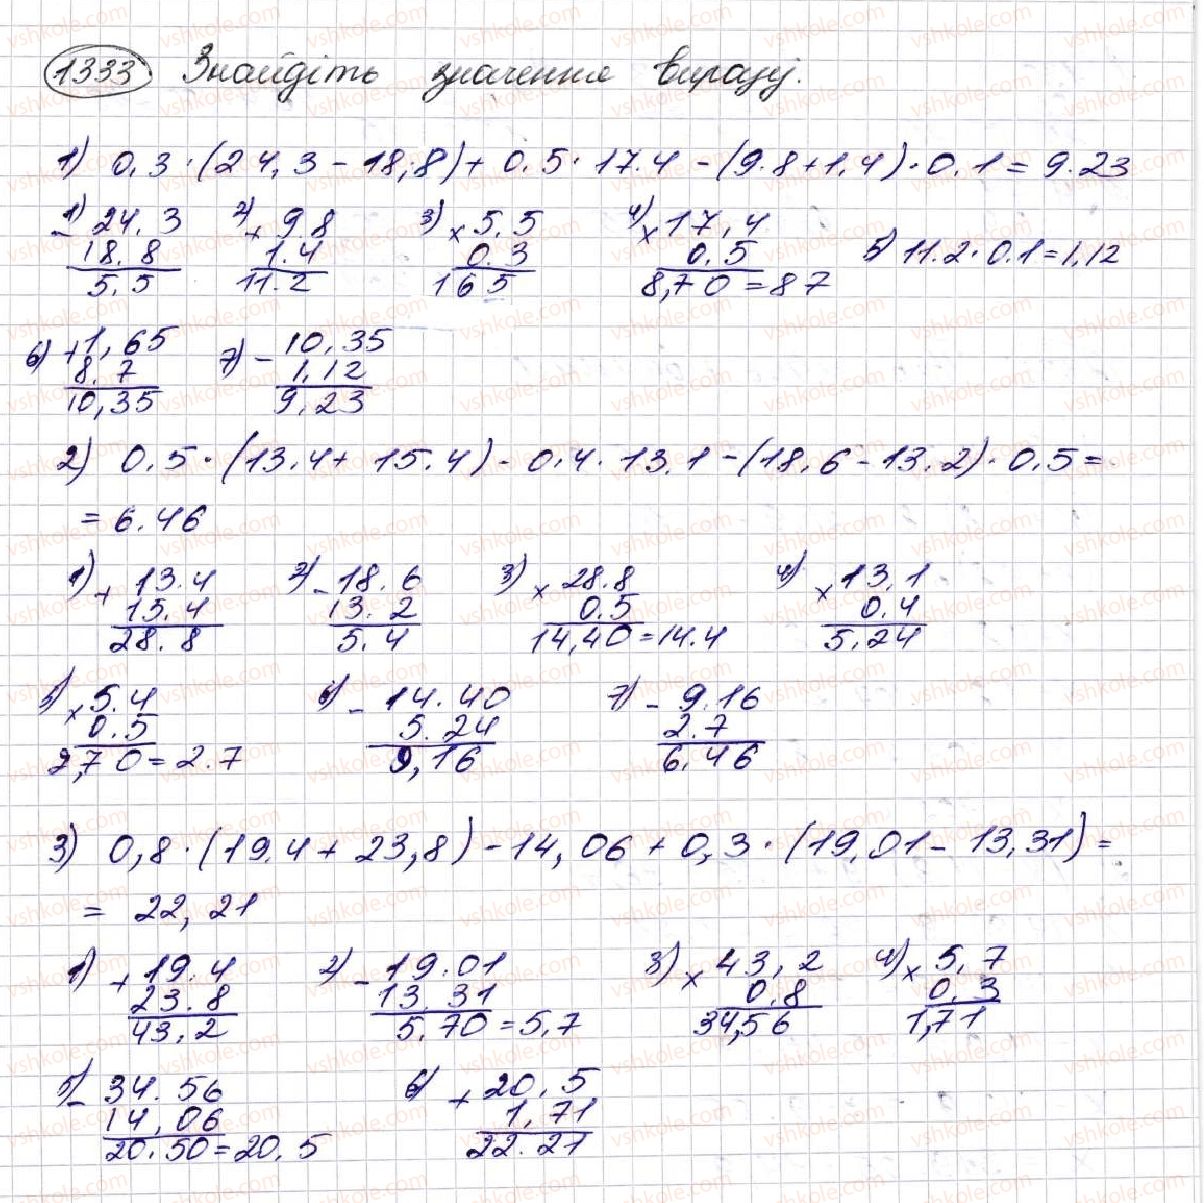 1333 Знайдіть значення виразу.
1) 0,3·(24,3-18,8)+0.5·17.4-(9.8+1,4)·0,1=9.23
1) 24.3 2) + 9.8 3) × 5,5 4) × 17,4 5) 11.2·0.1=1,12
- 18.8 1.4 0.3 0.5
5.5 11.2 165 8,70=87
6) +1,65 7) - 10,35
8.7 1,12
10,35 9,23
2) 0.5·(13.4+15.4)-0.4·13,1-(18.6-13.2)·0.5=
=6.46
1) + 13.4 2) - 18.6 3) × 28.8 4) × 13,1
15.4 13.2 0.5 0.4
28.8 5.4 14,40=14.4 5,24
5) × 5.4 6) - 14.40 7) - 9.16
0.5 5.24 2.7
2,70=2.7 9,16 6.46
3) 0,8·(19.4+23,8)-14,06+0,3·(19,01-13,31)=
= 22,21
1) + 19.4 2) - 19.01 3) × 43,2 4) × 5,7
23.8 13.31 0.8 0.3
43,2 5.70=5,7 34,56 1,71
5) - 34.56 6) + 20,5
14,06 1,71
20.50=20,5 22.21